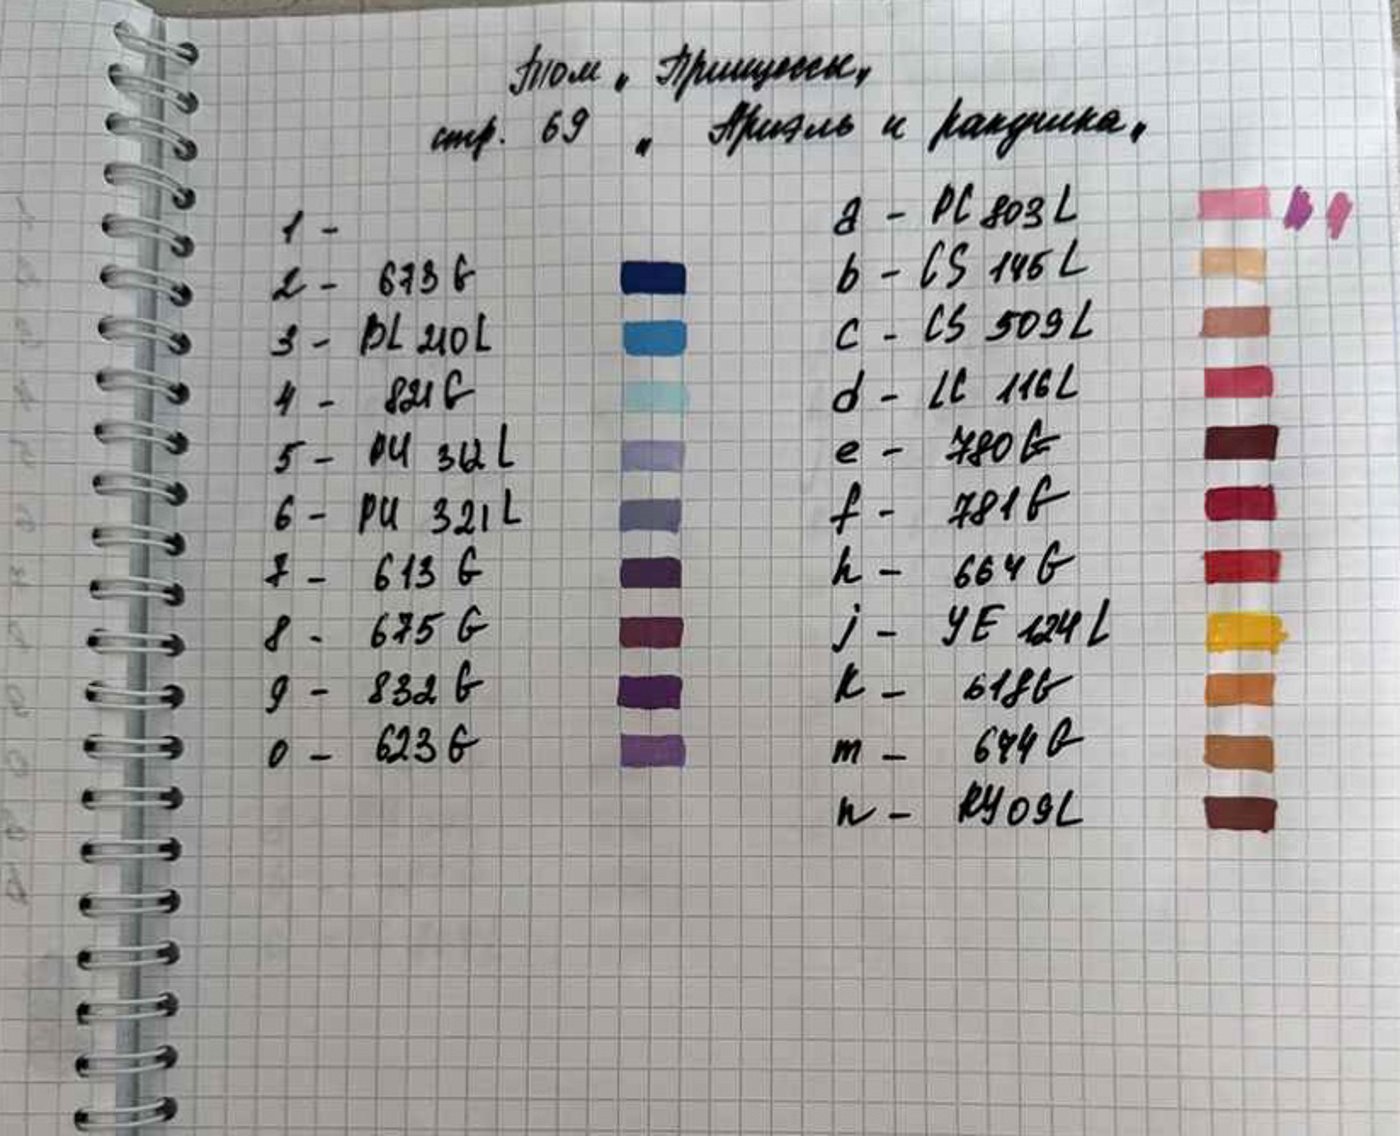 Том „Принцессы„
стр. 69 „Ариэль и ракушка„
1 -
2 - 673 G
3 - BL 210 L
4 - 821 G
5 - PU 312 L
6 - PU 321 L
7 - 613 G
8 - 675 G
9 - 832 G
0 - 623 G
a - PC 803 L
b - CS 145 L
c - CS 509 L
d - LC 116 L
e - 780 G
f - 781 G
h - 664 G
j - YE 124 L
k - 618 G
m - 644 G
n - RY 09 L